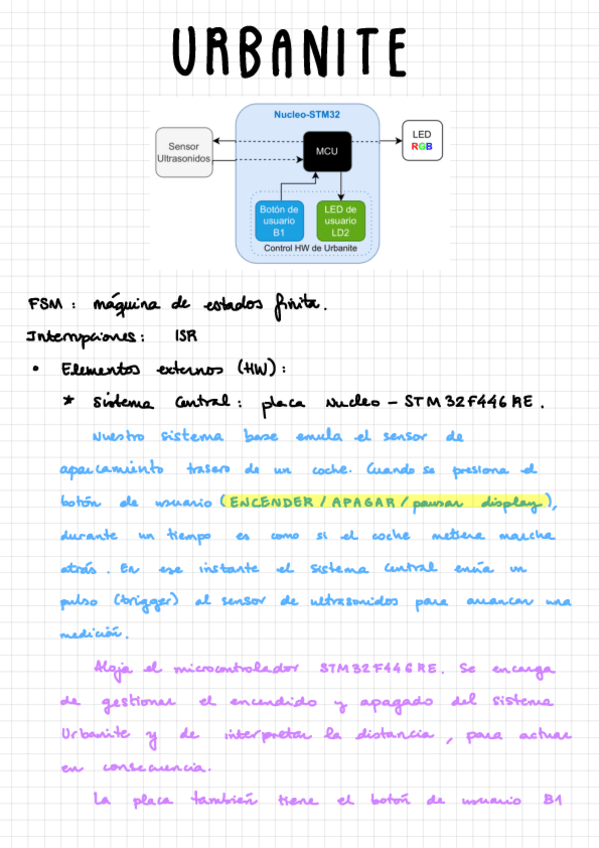 URBANITE
Nucleo-STM32
Sensor
Ultrasonidos
MCU
LED
RGB
Botón de
usuario
B1
LED de
usuario
LD2
Control HW de Urbanite
FSM : máquina de estados finita.
Interrupciones: ISR
• Elementos externos (HW):
* Sistema Central: placa Nucleo - STM32F446RE.
Nuestro sistema base emula el sensor de
aparcamiento trasero de un coche. Cuando se presiona el
botón de usuario (ENCENDER / APAGAR / pausar display),
durante un tiempo es como si el coche metiera marcha
atrás. En ese instante el sistema central envía un
pulso (trigger) al sensor de ultrasonidos para arrancar una
medición.
Aloja el microcontrolador STM32F446RE. Se encarga
de gestionar el encendido y apagado del sistema
Urbanite y de interpretar la distancia, para actuar
en consecuencia.
La placa también tiene el botón de usuario B1